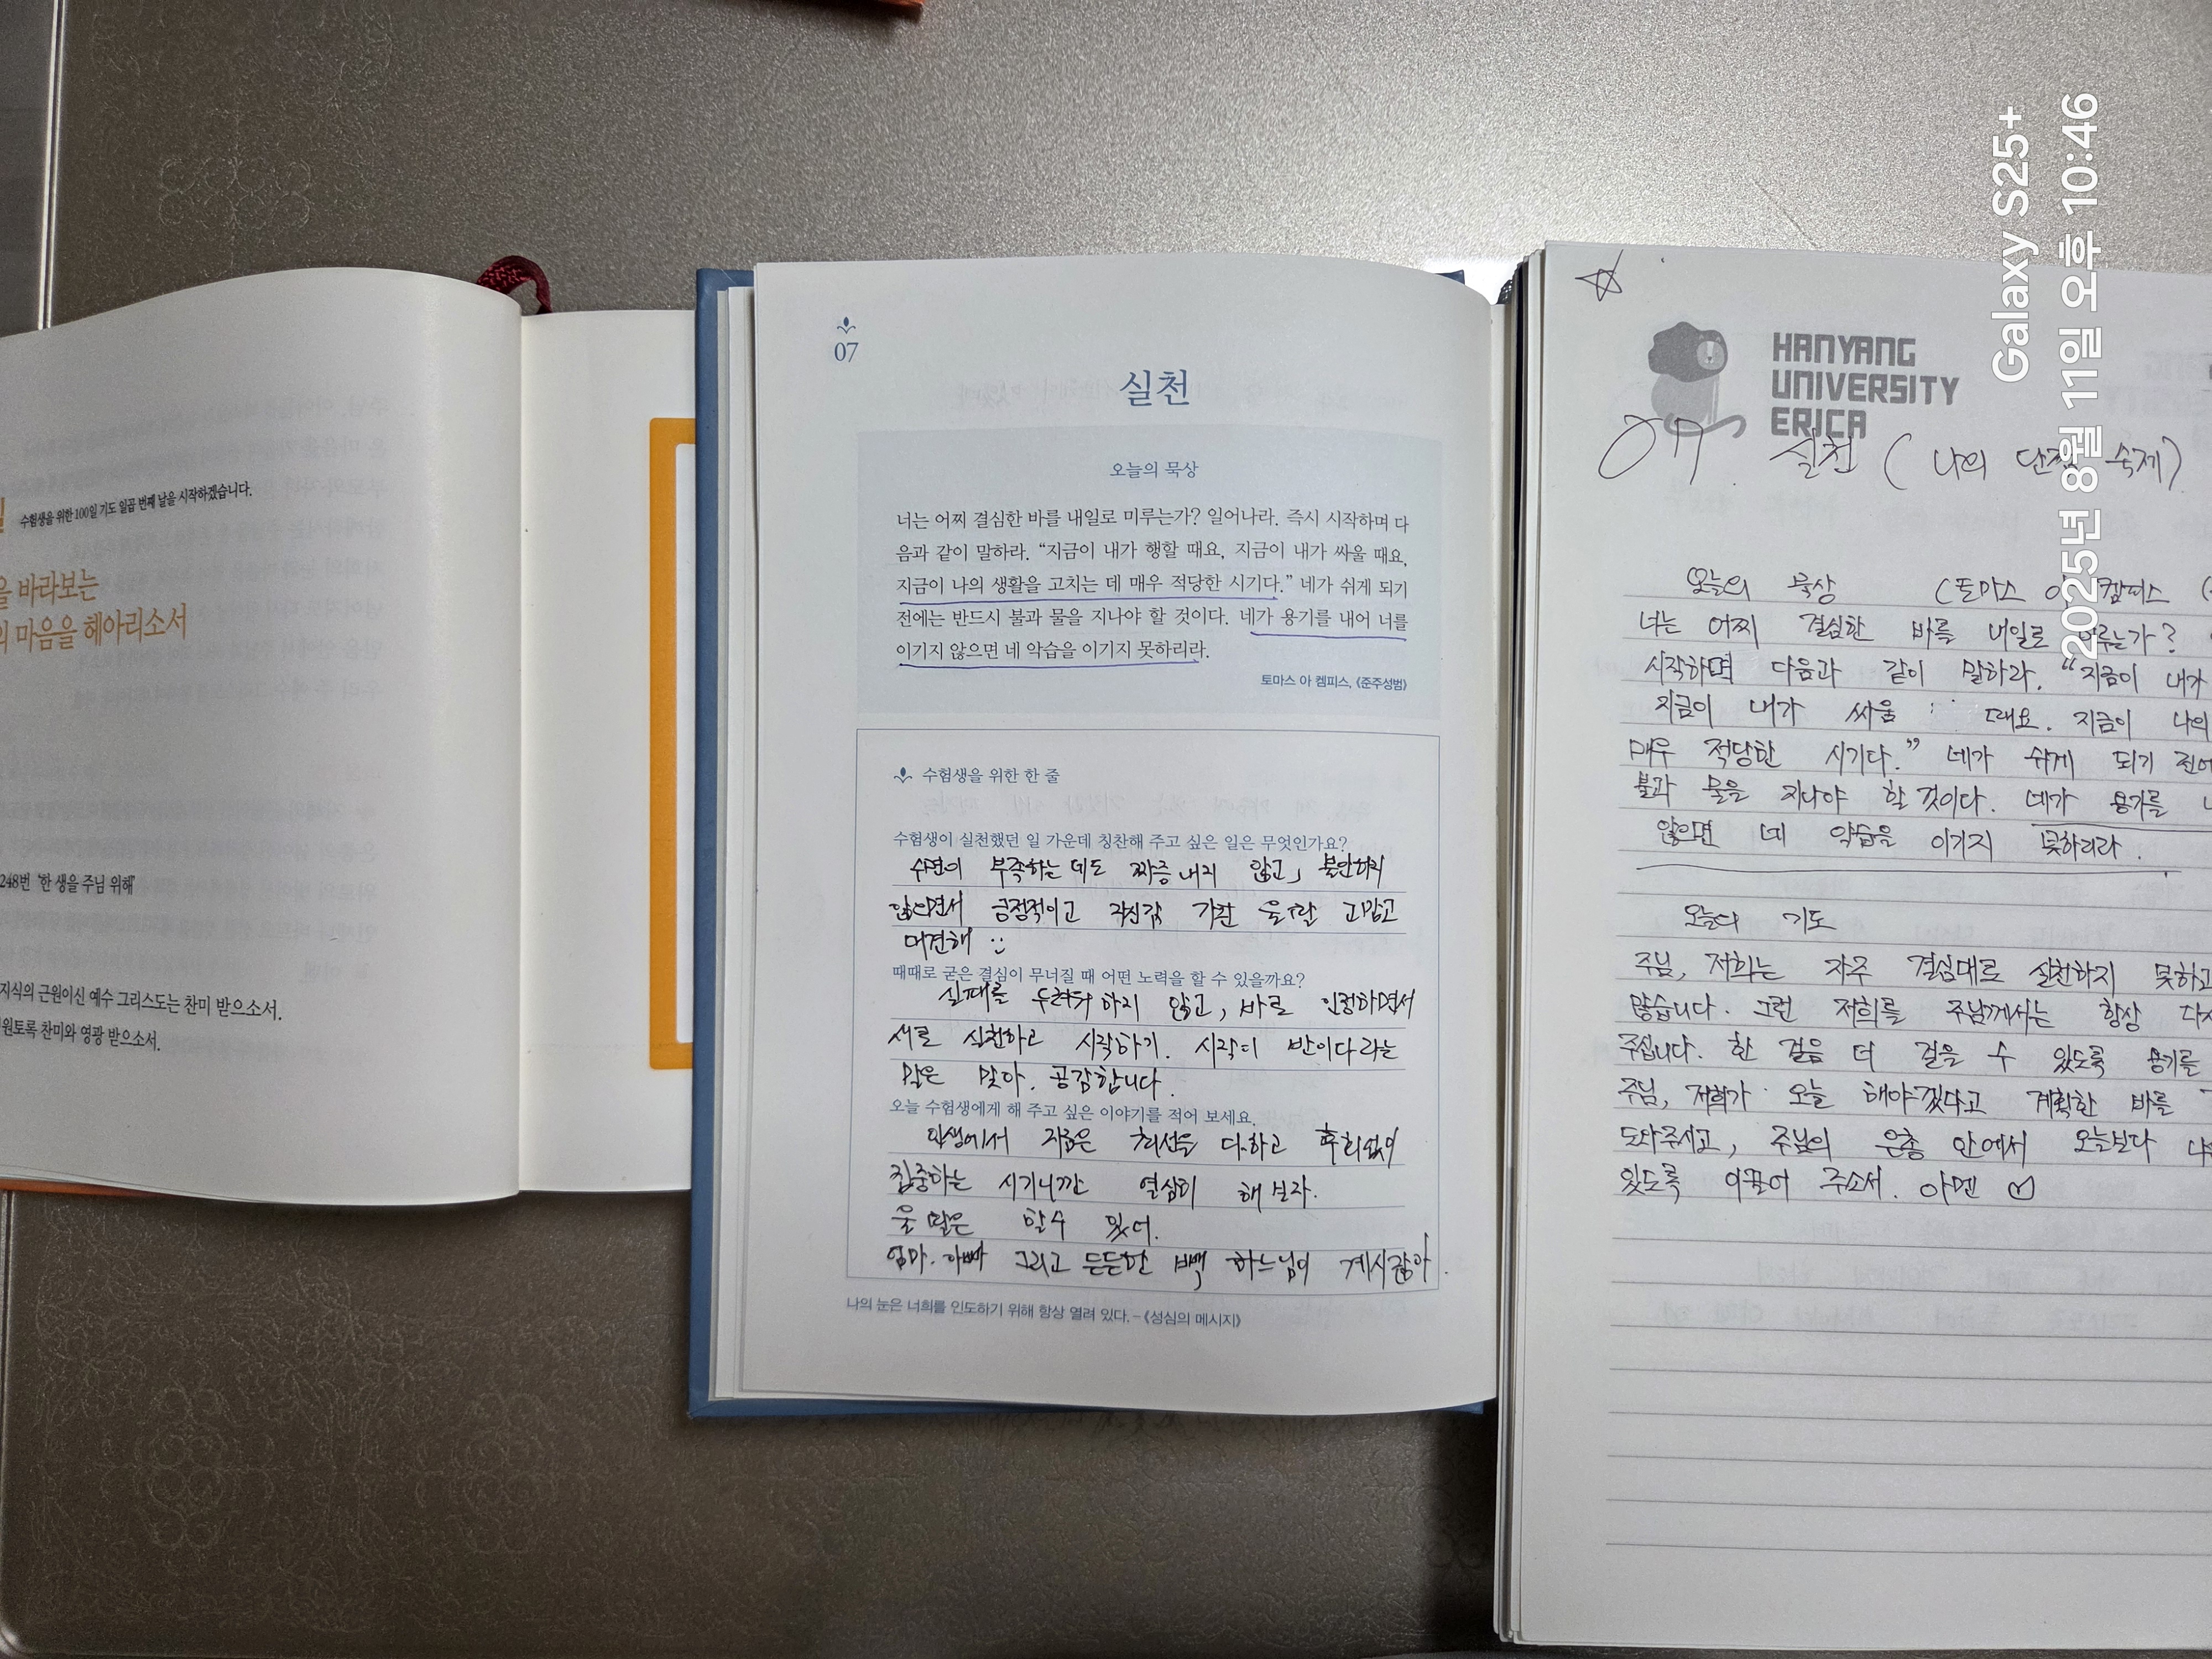 수험생을 위한 100일 기도 일곱 번째 날을 시작하겠습니다.
을 바라보는
의 마음을 헤아리소서
248번 '한 생을 주님 위해'
지식의 근원이신 예수 그리스도는 찬미 받으소서.
원토록 찬미와 영광 받으소서.
07
실천
오늘의 묵상
너는 어찌 결심한 바를 내일로 미루는가? 일어나라. 즉시 시작하며 다
음과 같이 말하라. “지금이 내가 행할 때요, 지금이 내가 싸울 때요,
지금이 나의 생활을 고치는 데 매우 적당한 시기다.” 네가 쉬게 되기
전에는 반드시 불과 물을 지나야 할 것이다. 네가 용기를 내어 너를
이기지 않으면 네 악습을 이기지 못하리라.
토마스 아 켐피스, 《준주성범》
수험생을 위한 한 줄
수험생이 실천했던 일 가운데 칭찬해 주고 싶은 일은 무엇인가요?
수면이 부족하는데도 짜증내지 않고, 불안하지
않으면서 긍정적이고 자신감 가진 고맙고
대견해
때때로 굳은 결심이 무너질 때 어떤 노력을 할 수 있을까요?
실패를 두려워 하지 않고, 바로 인정하면서
새로 실천하고 시작하기. 시작이 반이다라는
말은 맞아. 공감합니다.
오늘 수험생에게 해 주고 싶은 이야기를 적어 보세요.
인생에서 지금은 최선을 다하고 후회없이
집중하는 시기니깐 열심히 해보자.
할수 있어.
엄마. 아빠 그리고 든든한 빽 하느님이 계시잖아.
나의 눈은 너희를 인도하기 위해 항상 열려 있다. - 《성심의 메시지》
HANYANG
UNIVERSITY
ERICA
07. 실천 (나의 단점 숙제)
오늘의 묵상 (토마스 아 캠피스
너는 어찌 결심한 바를 내일로 미루는가?
시작하며 다음과 같이 말하라. “지금이 내가
지금이 내가 싸울 때요. 지금이 나의
매우 적당한 시기다.” 네가 쉬게 되기 전에
불과 물을 지나야 할 것이다. 네가 용기를
않으면 네 악습을 이기지 못하리라.
오늘의 기도
주님, 저희는 자주 결심대로 실천하지 못하고
많습니다. 그런 저희를 주님께서는 항상 다시
주십니다. 한 걸음 더 걸을 수 있도록 용기를
주님, 저희가 오늘 해야겠다고 계획한 바를
도와주시고, 주님의 은총 안에서 오늘보다
있도록 이끌어 주소서. 아멘
Galaxy S25+
2025년 8월 11일 오후 10:46